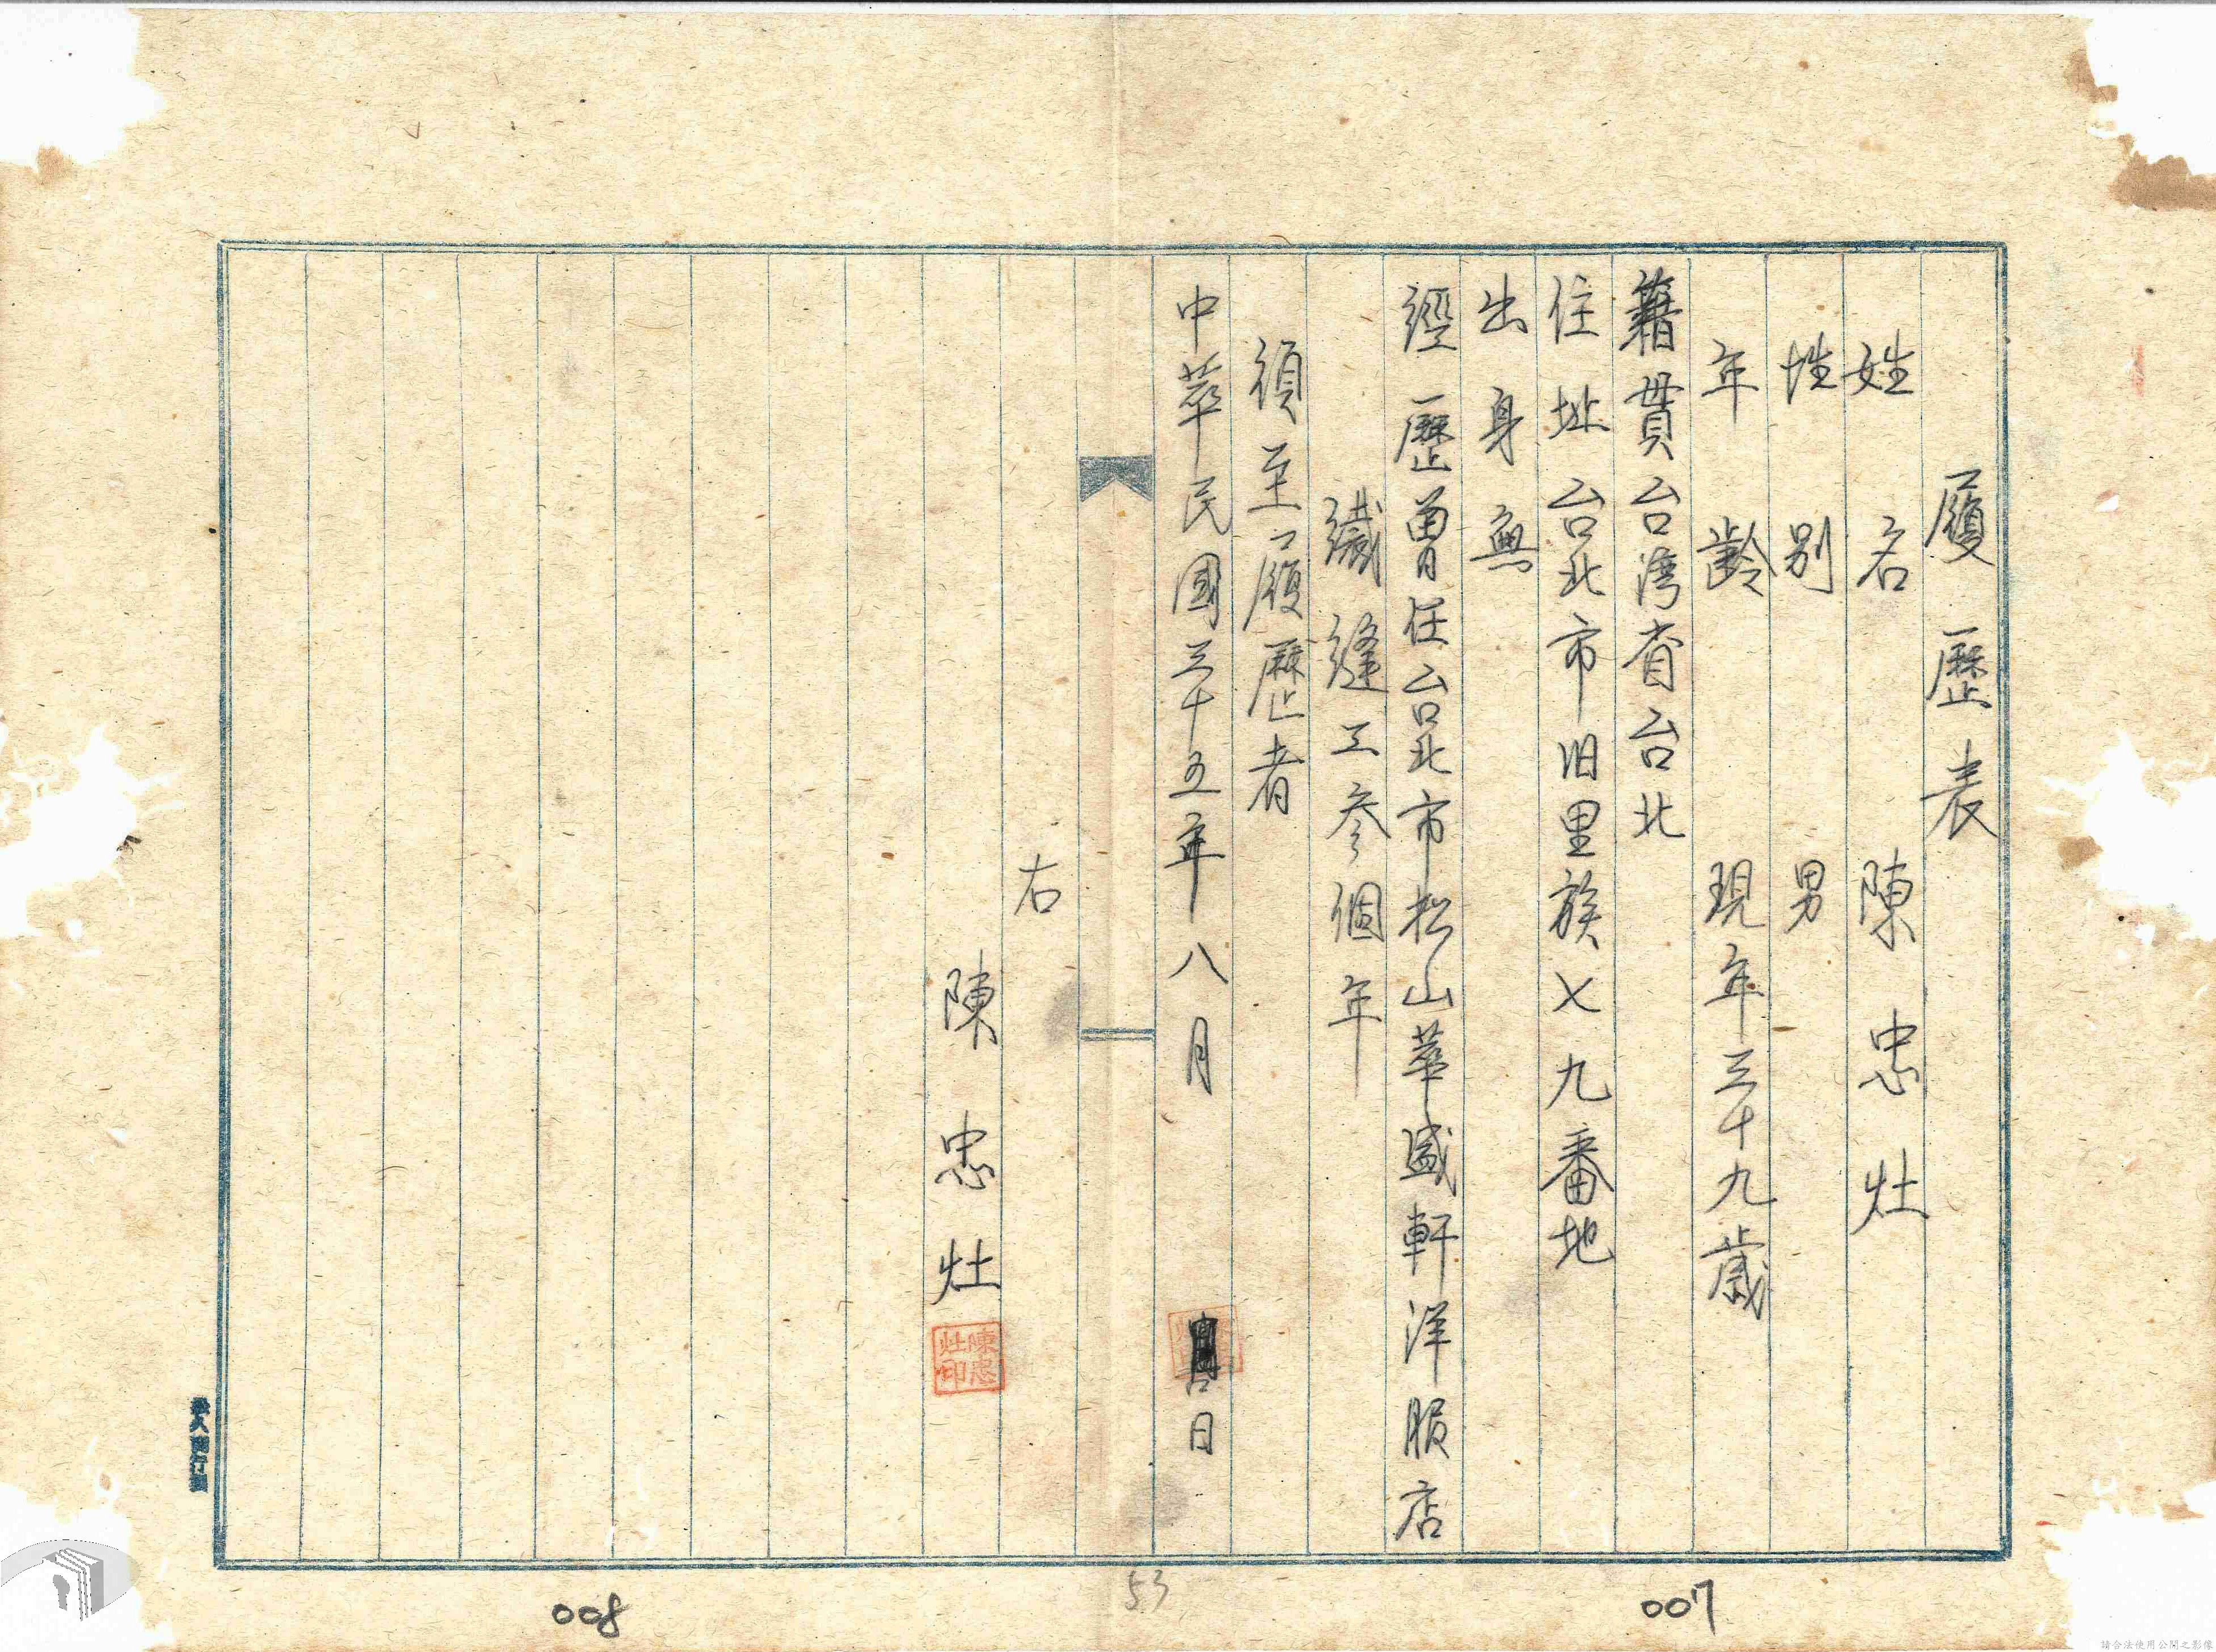 履歷表
姓名 陳忠灶
性別 男
年齡 現年三十九歲
籍貫台灣省台北
住址台北市旧里族七九番地
出身無
經歷曾任台北市松山華盛軒洋服店
纖縫工參個年
須至履歷者
中華民國三十五年八月 日
右
陳忠灶
陳忠灶印
007
53
008
請合法使用公開之影像